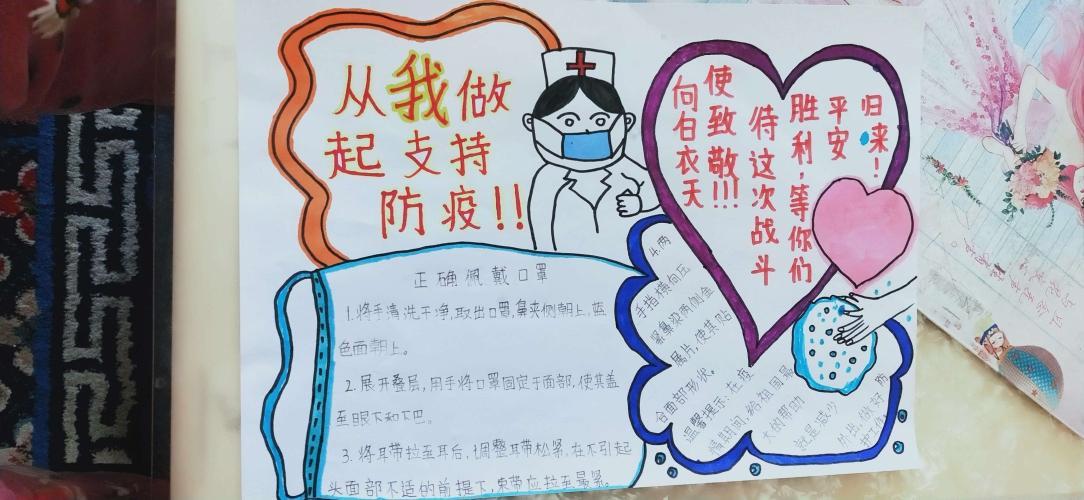 从我做
起支持
防疫!!
向白衣天
使致敬!!!
待这次战斗
胜利,等你们
平安
归来!
正确佩戴口罩
1.将手清洗干净,取出口罩,鼻夹侧朝上,蓝
色面朝上。
2.展开叠层,用手将口罩固定于面部,使其盖
至眼下和下巴。
3.将耳带拉至耳后,调整耳带松紧,在不引起
头面部不适的前提下,束带应拉至最紧。
4.两
手指横向压
紧鼻梁两侧金
属片,使其贴
合面部形状。
温馨提示:在疫
情期间,给祖国最
大的帮助
就是减少
外出,做好
防护工作